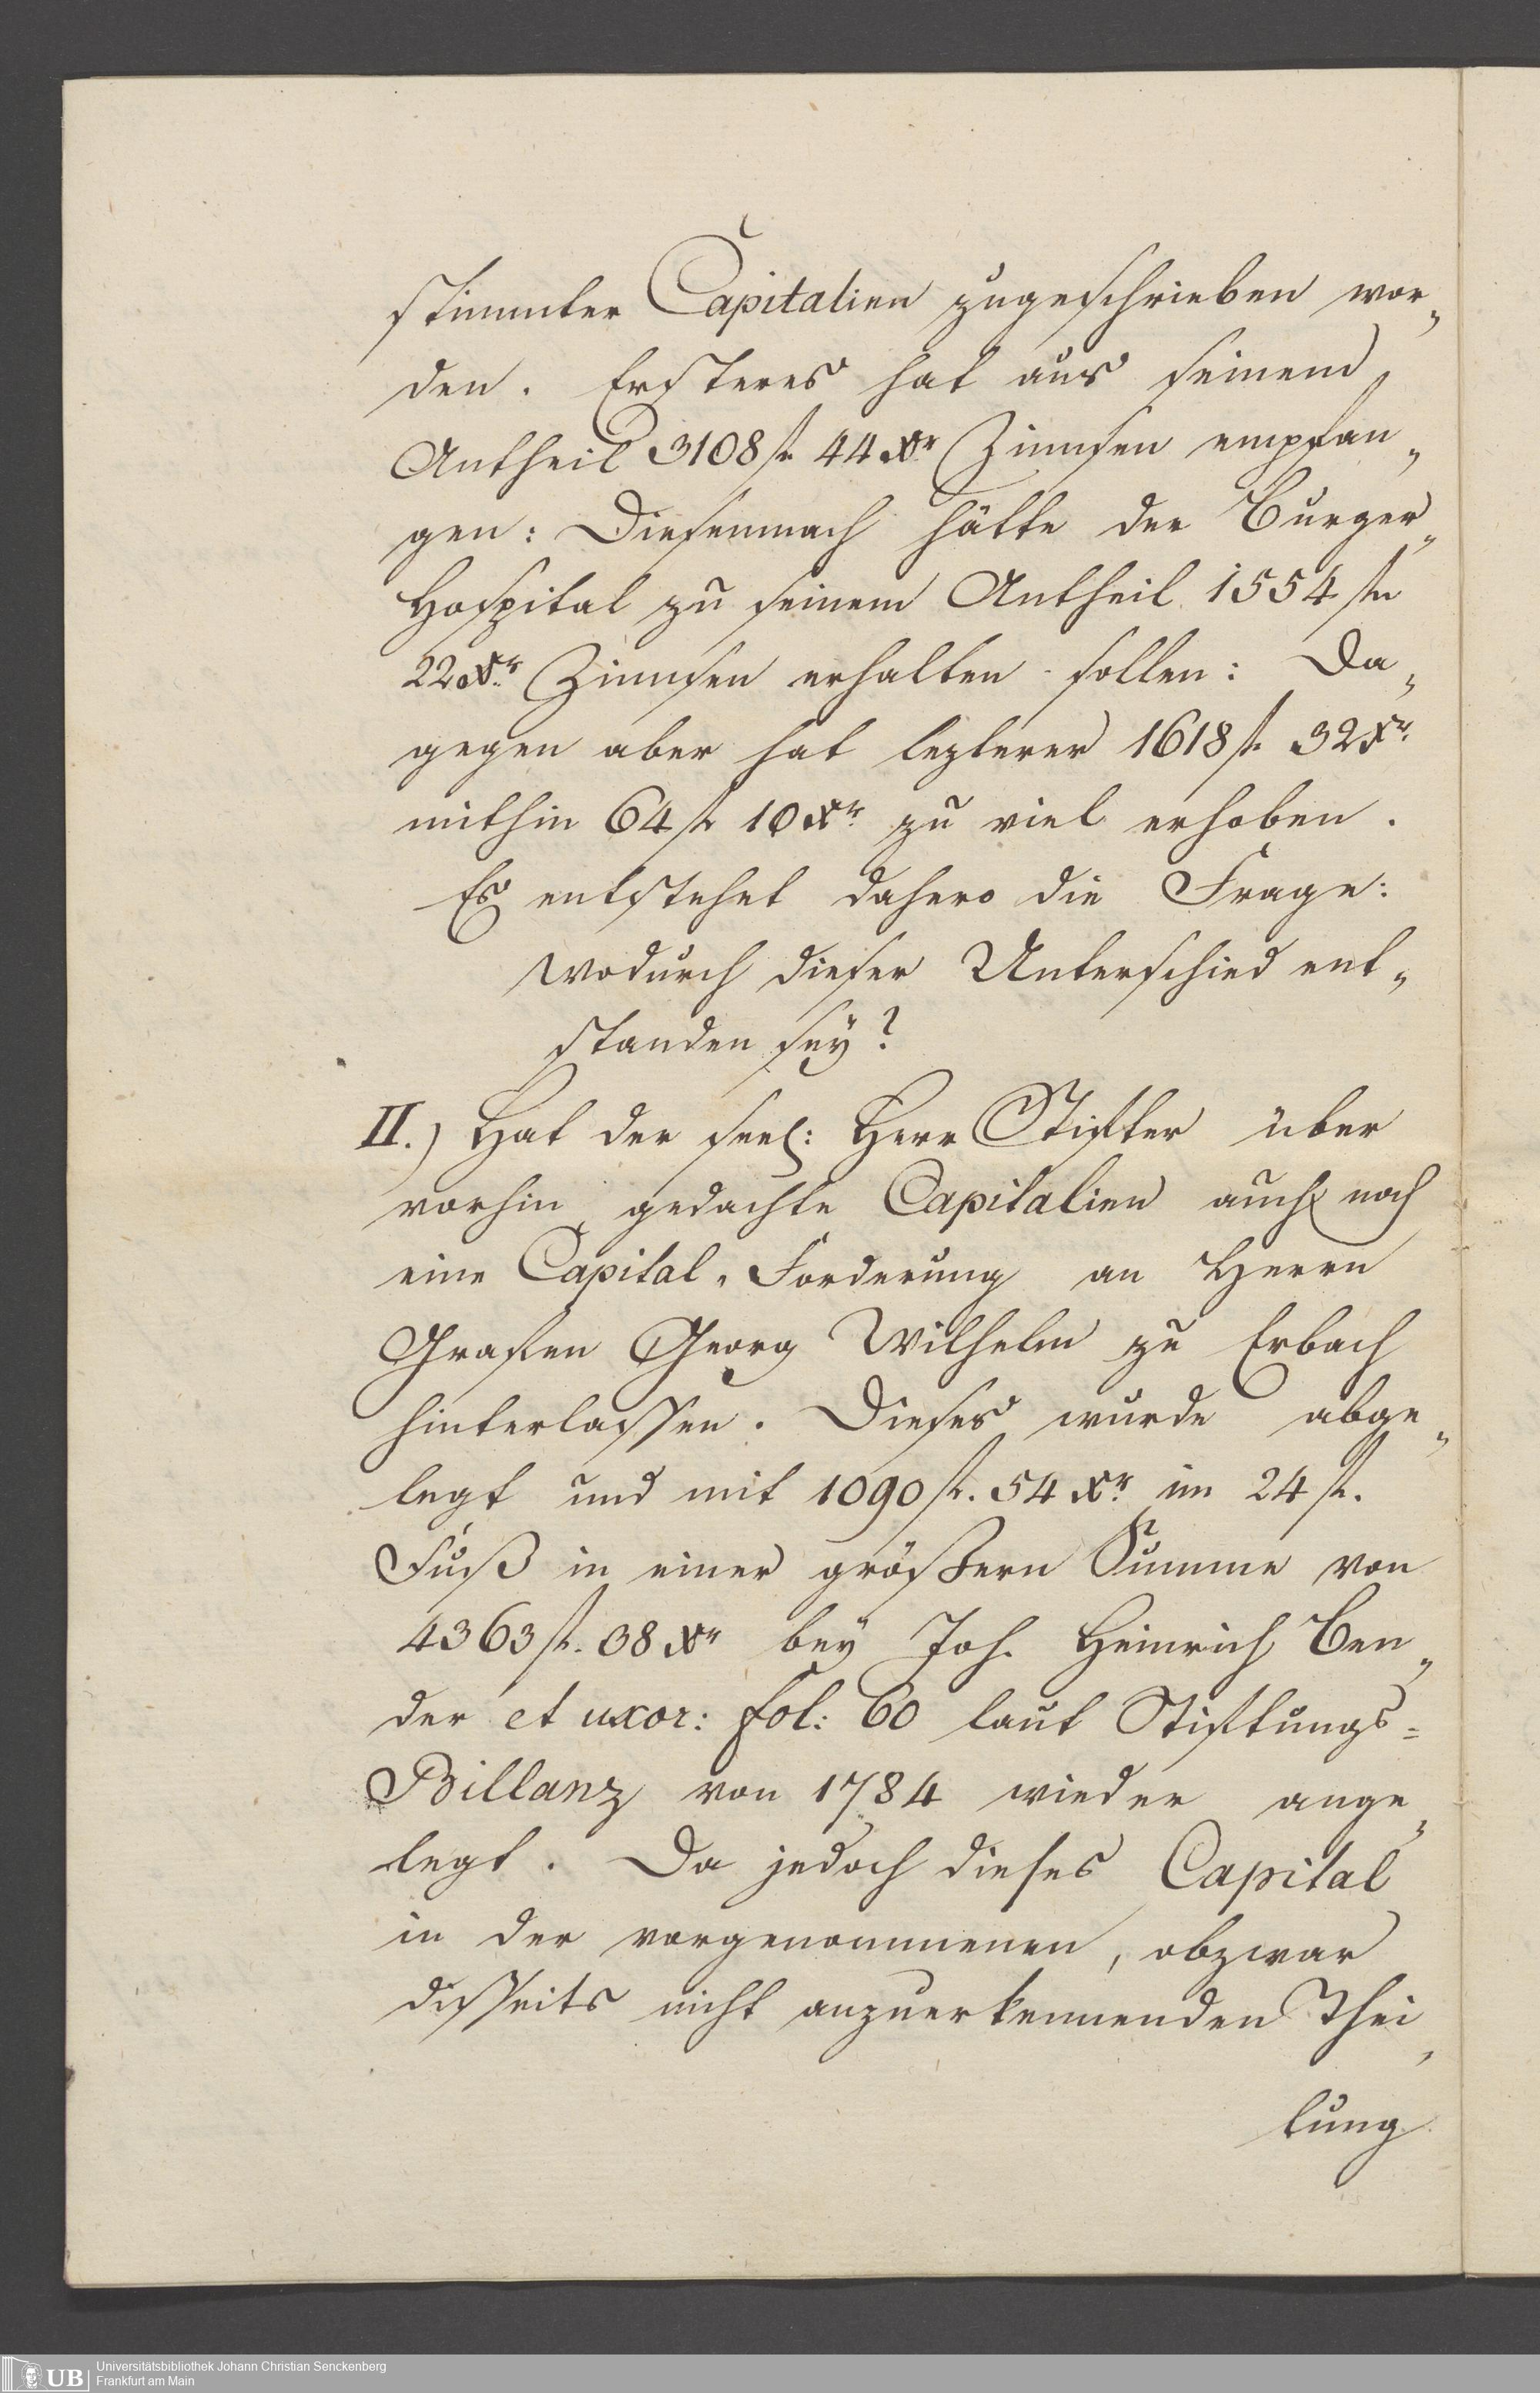 stimmter Capitalien zugeschrieben wor„
den. Ersteres hat aus seinem
Antheil 3108 f. 44 Xr. Zinnsen empfan„
gen: Diesemnach hätte der Burger„
Hospital zu seinem Antheil 1554 f.
22 Xr. Zinnsen erhalten sollen: Da„
gegen aber hat lezterer 1618 f. 32 Xr.
mithin 64 f. 10 Xr. zu viel erhoben.
Es entstehet dahero die Frage:
Wodurch dieser Unterschied ent„
standen seÿ?
II.) Hat der seel: Herr Stifter über
vorhin gedachte Capitalien auch noch
eine Capital„Forderung an Herrn
Grafen Georg Wilhelm zu Erbach
hinterlassen. Dieses wurde abge„
legt und mit 1090 f. 54 Xr. im 24 f.
Fuß in einer größern Summe von
4363 f. 38 Xr. beÿ Joh. Heinrich Ben„
der et uxor: fol: 60 laut Stiftungs=
Billanz von 1784 wieder ange„
legt. Da jedoch dieses Capital
in der vorgenommenen, obzwar
disseits nicht anzuerkennenden Thei„
lung
UB
Universitätsbibliothek Johann Christian Senckenberg
Frankfurt am Main